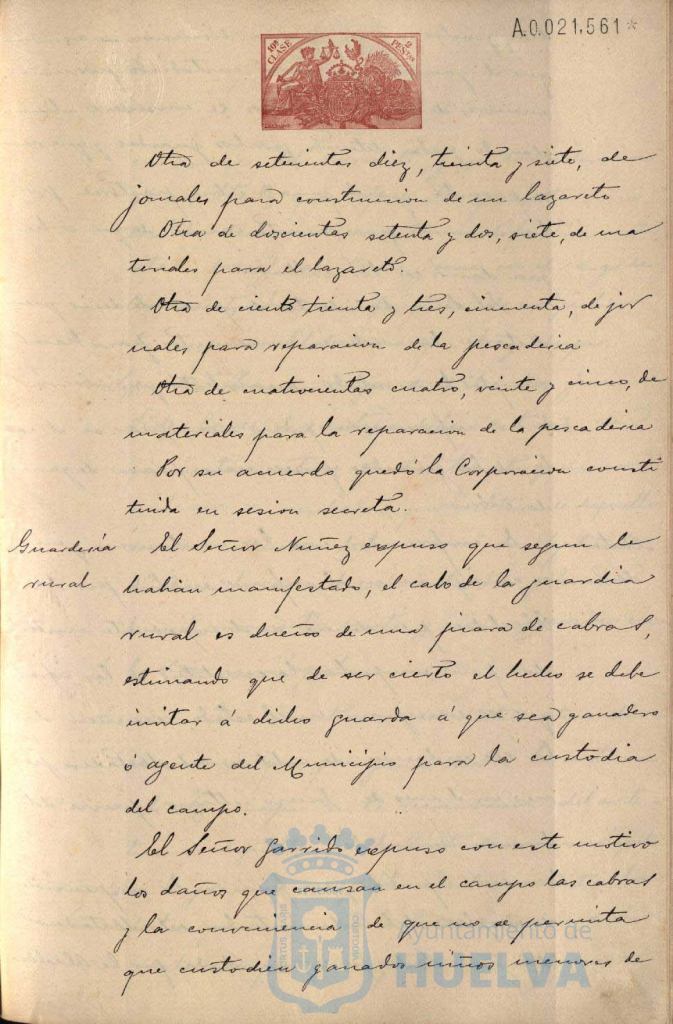 A.0.021,561*
10ª CLASE 2 PESETAS
Otra de setecientas diez, treinta y siete, de
jornales para construccion de un lazareto
Otra de doscientas setenta y dos, siete, de ma
teriales para el lazareto.
Otra de ciento treinta y tres, cincuenta, de jor
nales para reparacion de la pescaderia
Otra de cuatrocientas cuatro, veinte y cinco, de
materiales para la reparacion de la pescaderia
Por su acuerdo quedó la Corporacion consti
tuida en sesion secreta.
Guardería
rural
El Señor Nuñez expuso que segun le
habian manifestado, el cabo de la guardia
rural es dueño de una piara de cabras,
estimando que de ser cierto el hecho se debe
invitar á dicho guarda á que sea ganadero
ó agente del Municipio para la custodia
del campo.
El Señor Garrido expuso con este motivo
los daños que causan en el campo las cabras
y la conveniencia de que no se permita
que custodien ganados niños menores de
Ayuntamiento de
HUELVA